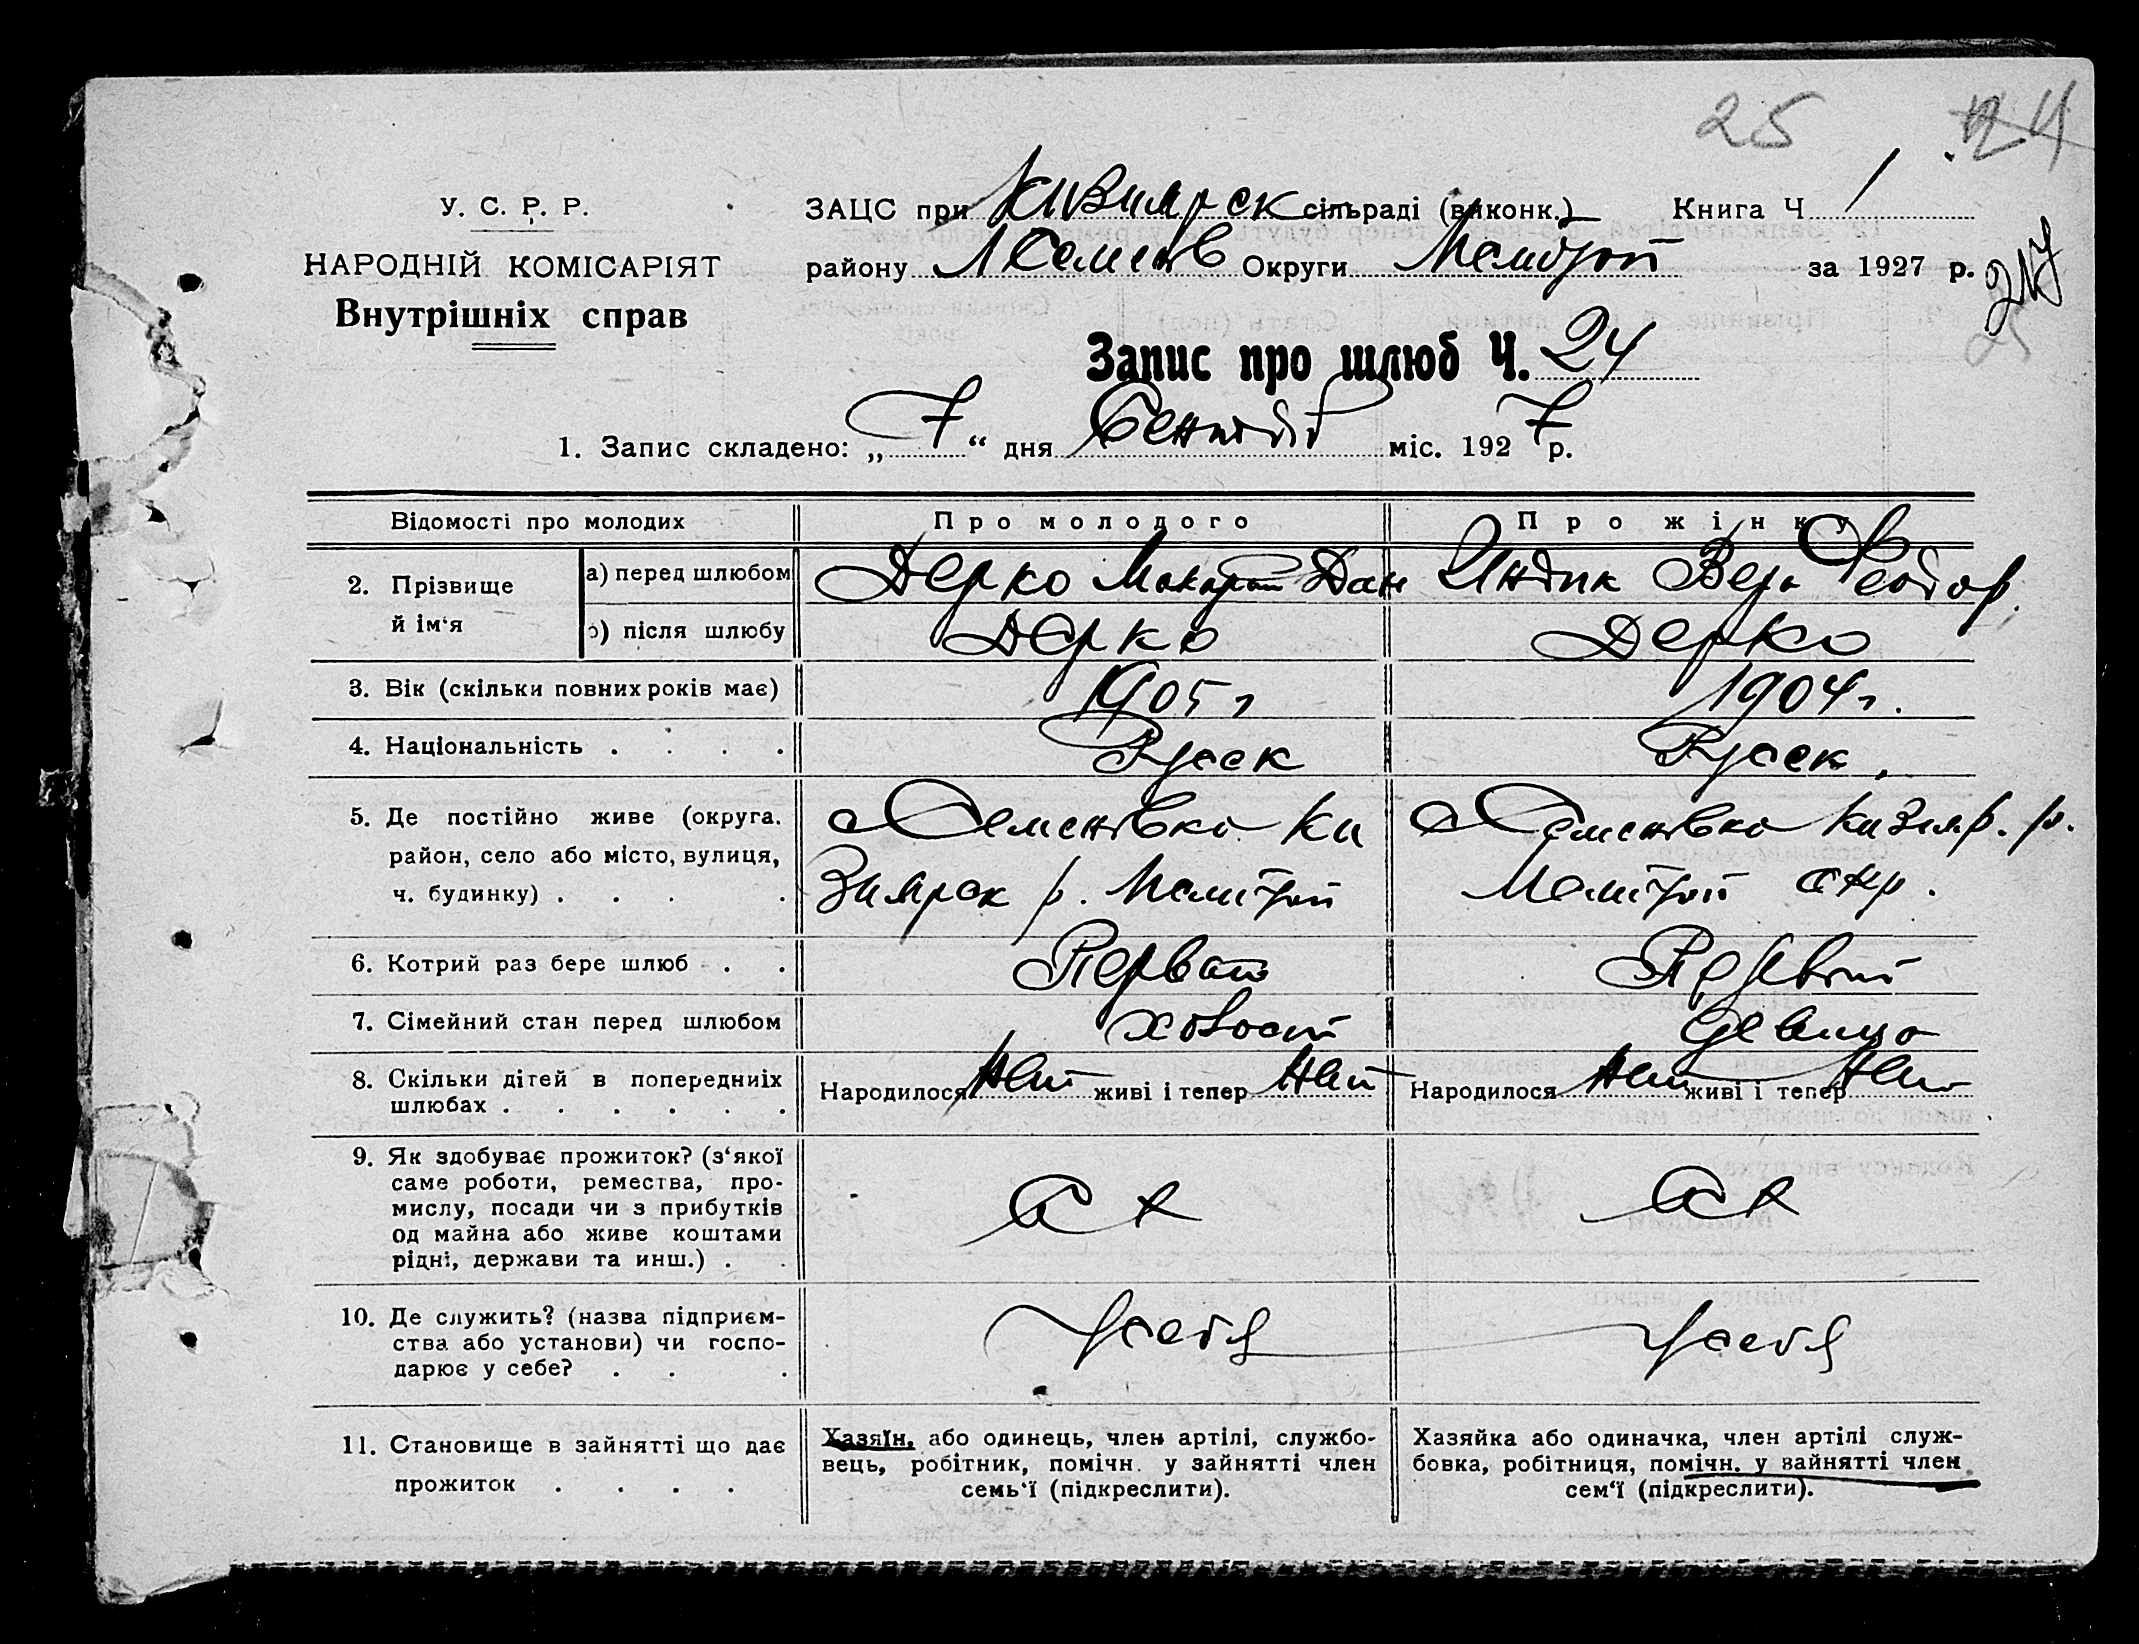 25 24
У. С. Р. Р.
НАРОДНІЙ КОМІСАРІЯТ
Внутрішніх справ
ЗАЦС при Кизиярск сільраді (виконк.) Книга Ч 1
району Семенов Округи Мелитоп за 1927 р.
217
25
Запис про шлюб Ч. 24
1. Запис складено: „ 7 “ дня Сентяб міс. 192 7 р.
Відомості про молодих Про молодого Про жінку
2. Прізвище й ім‘я а) перед шлюбом Дерко Макар Дан Индик Вера Феодор.
б) після шлюбу Дерко Дерко
3. Вік (скільки повних років має) 1905 г 1904 г.
4. Національність . . . . Русск Русск.
5. Де постійно живе (округа. с Семенівка Ки с Семенівка Кизияр. р.
район, село або місто, вулиця, Зиярск р. Мелитоп Мелитоп окр.
ч. будинку) . . . .
6. Котрий раз бере шлюб . . Первый Первый
7. Сімейний стан перед шлюбом холост девица
8. Скільки дітей в попередниіх Народилося Нет живі і тепер Нет Народилося Нет живі і тепер Нет
шлюбах . . . . . .
9. Як здобуває прожиток? (з‘якої
саме роботи, ремества, про-
мислу, посади чи з прибутків
од майна або живе коштами
рідні, держави та инш.) . . С Х С Х
10. Де служить? (назва підприєм-
ства або установи) чи госпо-
дарює у себе? . . . У себя У себя
11. Становище в зайнятті що дає
прожиток . . . .
Хазяїн, або одинець, член артілі, службо-
вець, робітник, помічн. у зайнятті член
семь‘ї (підкреслити).
Хазяйка або одиначка, член артілі служ-
бовка, робітниця, помічн. у зайнятті член
сем‘ї (підкреслити).